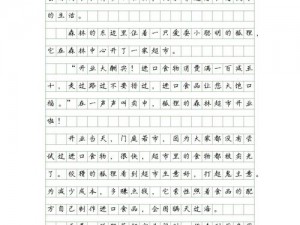 的生活。
森林的东边里住着一只爱耍小聪明的狐狸,
它在森林中心开了一家超市。
“开业大酬宾!进口食物消费满一百减五
十,走过路过不要错过。进口食品让您大饱口
福。”在一声声叫卖中,狐狸的森林超市开业
啦!
开业当天,门庭若市,因为大家都没有尝
试过进口食物。很快,超市里的食物都被卖光
了。狡猾的狐狸看到超市生意好,打起鬼主意。
为减少成本,多赚点钱,它索性照着食品的配
方自己制作进口食品,企图瞒天过海。